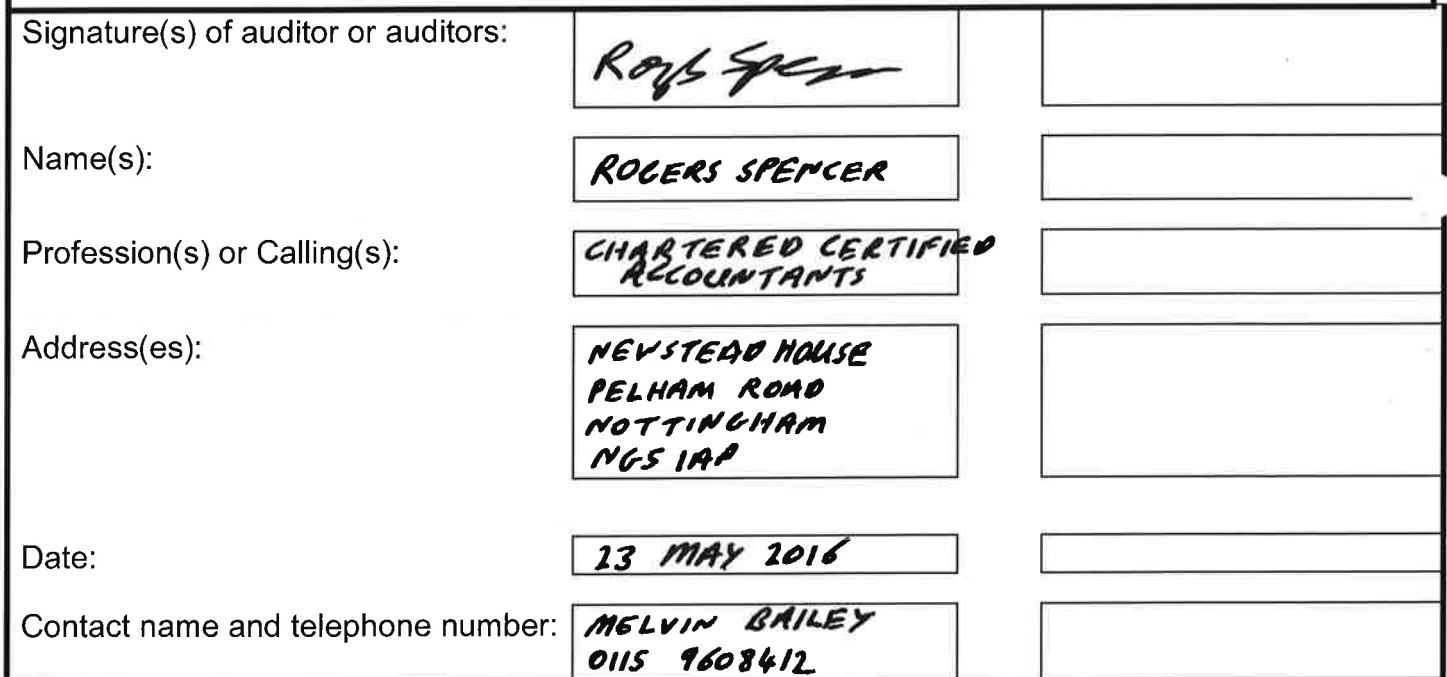 Signature(s) of auditor or auditors:
Name(s): ROGERS SPENCER
Profession(s) or Calling(s): CHARTERED CERTIFIED
ACCOUNTANTS
Address(es): NEWSTEAD HOUSE
PELHAM ROAD
NOTTINGHAM
NG5 1AP
Date: 23 MAY 2016
Contact name and telephone number: MELVIN BAILEY
0115 9608412